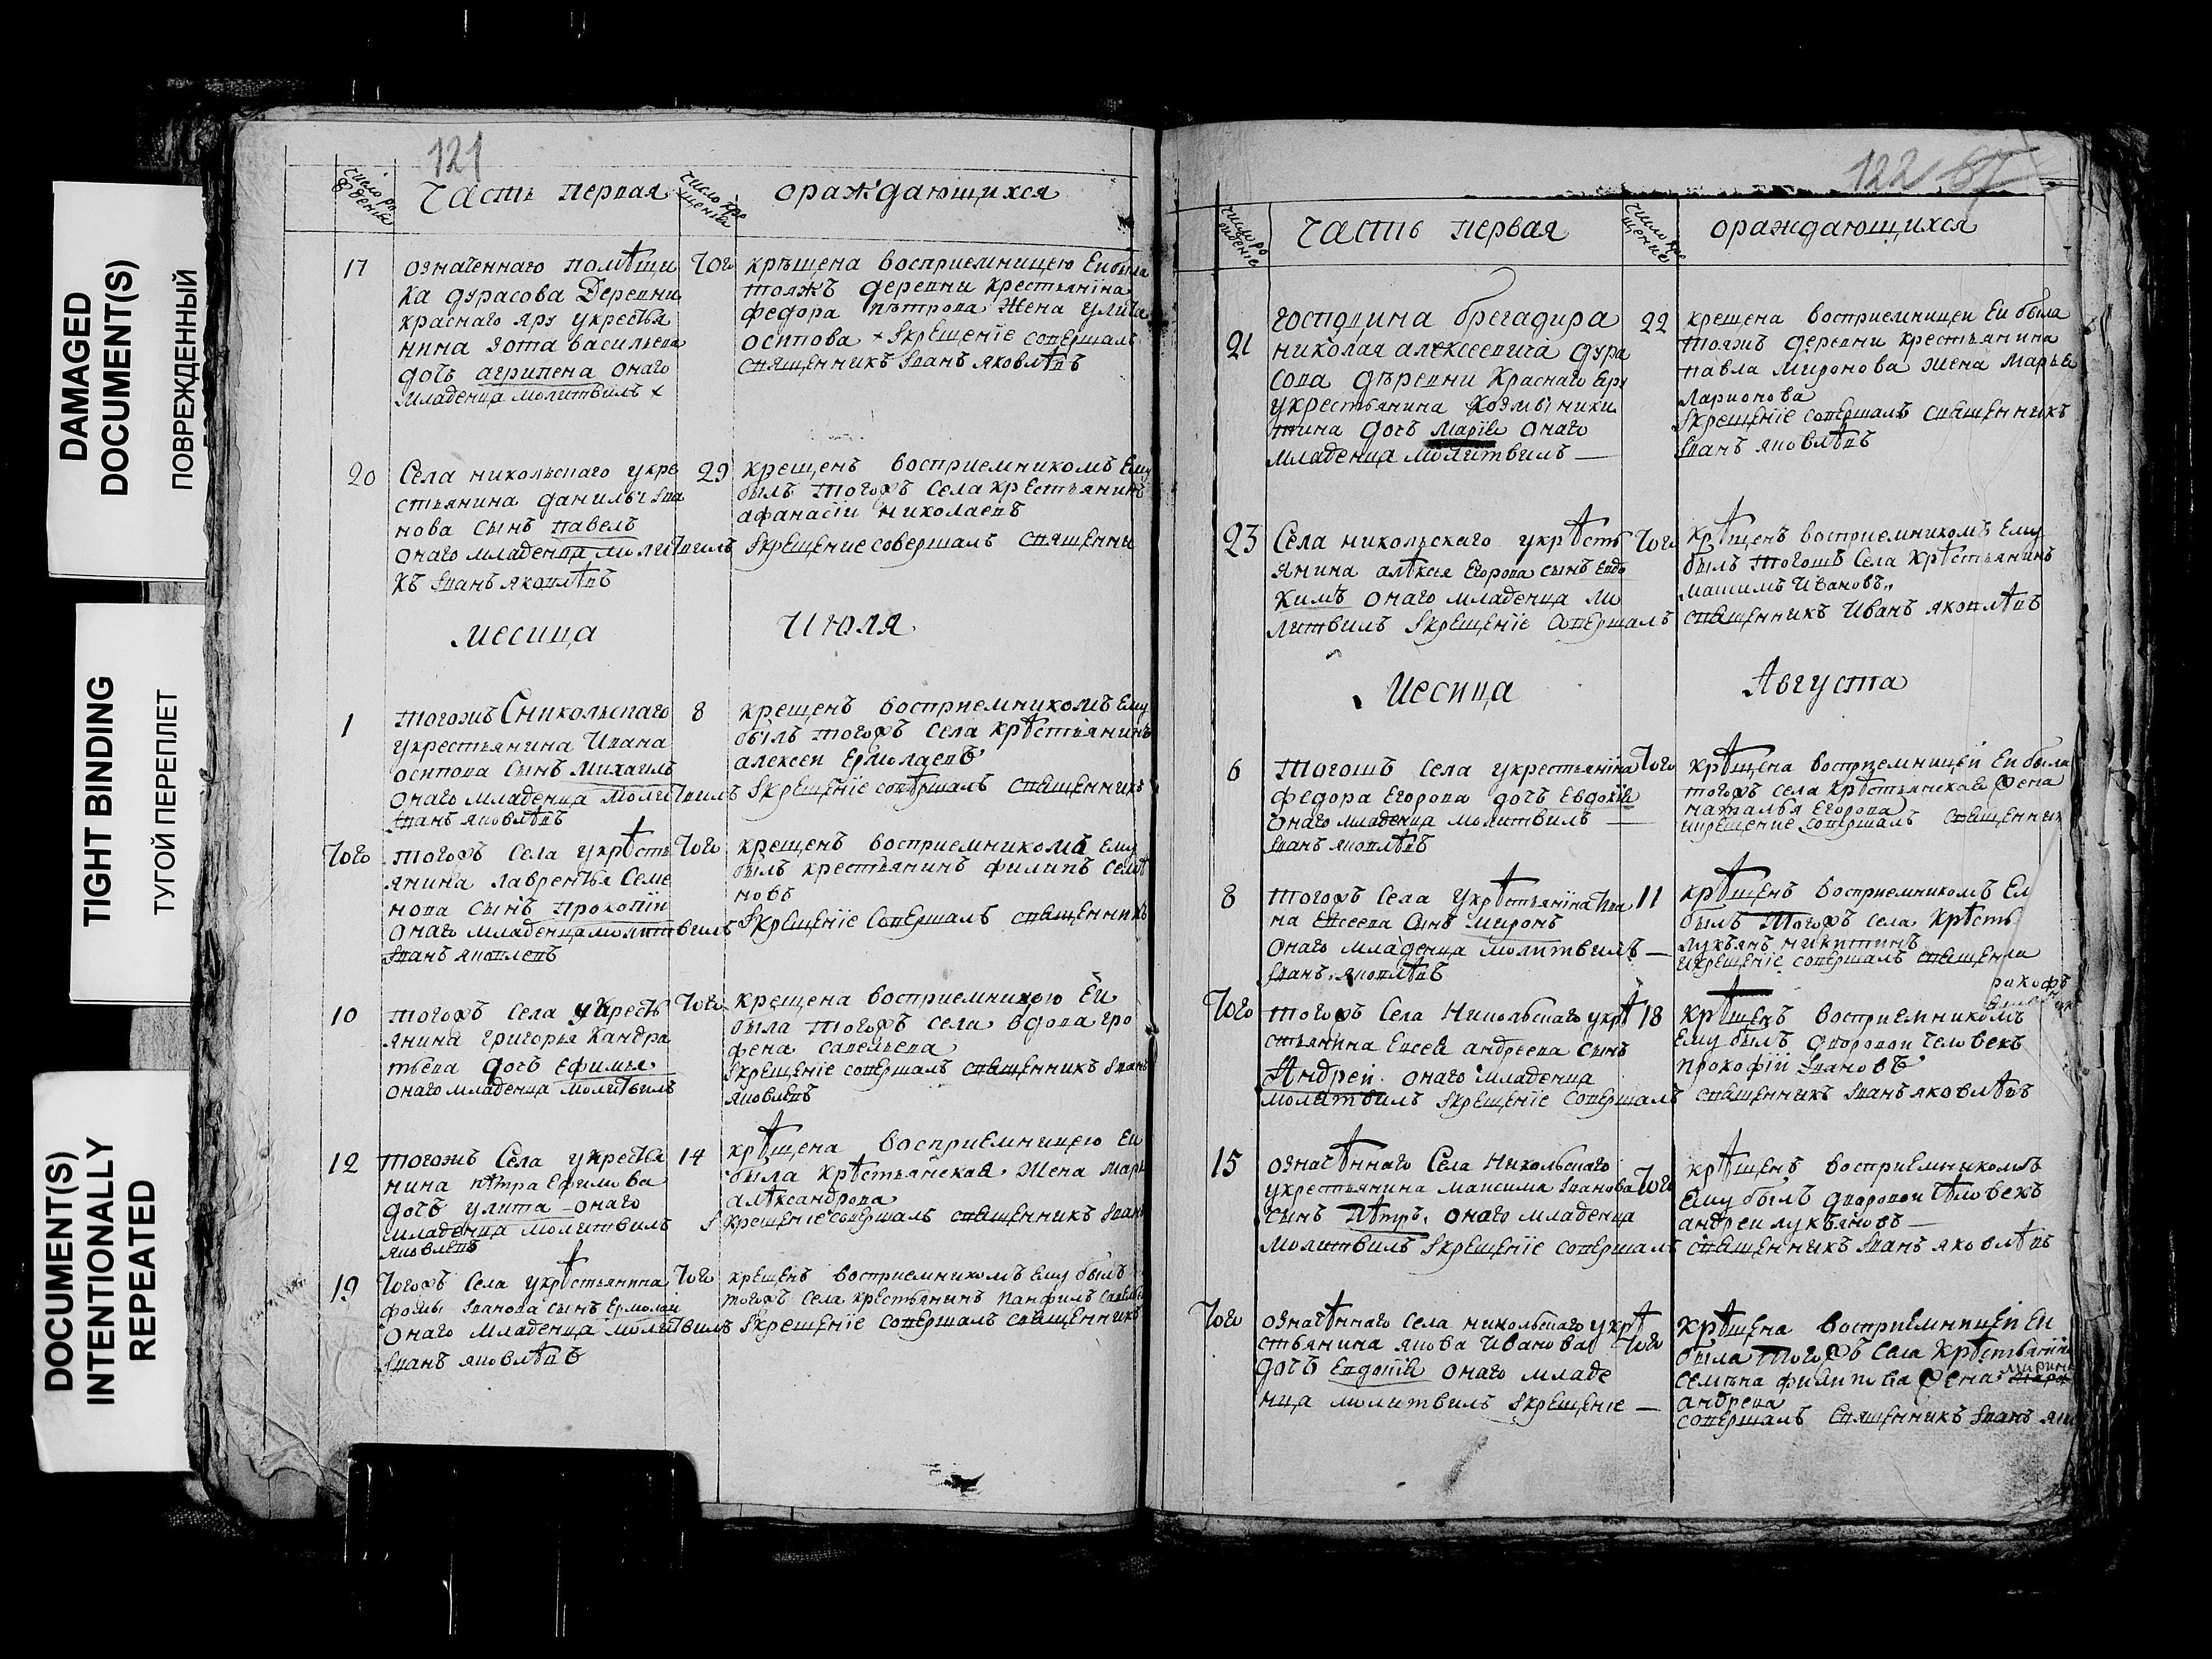 DAMAGED
DOCUMENT(S)
ПОВРЕЖДЕННЫЙ
TIGHT BINDING
ТУГОЙ ПЕРЕПЛЕТ
DOCUMENT(S)
INTENTIONALLY
REPEATED
121
Часть первая
ораждающихся
17 означеннаго помѣщи
ка дурасова Деревни
краснаго яру укрестья
нина зота васильева
дочъ агрипена онаго
младенца молитвилъ
того крѣщена восприемницею Еи была
тояжъ деревни крестьянина
федора пѣтрова жена улита
осипова Iкрещенiе совершалъ
священникъ Iванъ яковлѣвъ
20 Села никольскаго укре
стьянина данилы Iва
нова сынъ павелъ
онаго младенца молитвилъ
29 крещенъ восприемникомъ Ему
былъ тогожъ села крестьянинъ
афанасiи николаевъ
Iкрещение совершалъ священни
къ Iванъ яковлѣвъ
месяца Июля
1 тогожъ Сникольскаго
укрестьянина Ивана
осипова сынъ михаилъ
онаго младенца молитвилъ
8 крещенъ восприемникомъ Ему
былъ тогожъ села крѣстьянинъ
алексеи Ермолаевъ
Iкрещенiе совершалъ священникъ
Iванъ яковлѣвъ
того тогожъ села укрѣсть
янина лаврентья Семе
нова сынъ прокопiи
онаго младенца молитвилъ
того крещенъ восприемникомъ ему
былъ крестьянинъ филипъ семѣ
новъ
Iкрещенiе Совершалъ священникъ
Iванъ яковлевъ
10 тогожъ села укресть
янина григорья Кандра
тьева дочъ ефимья
онаго младенца молитвилъ
того крещена восприемницею Еи
была тогожъ села вдова гро
фена савельева
Iкрещенiе совершалъ священникъ Iванъ
яковлевъ
12 тогожъ Села укрестья
нина пѣтра Ефимова
дочъ улита онаго
младенца молитвилъ
яковлевъ
14 крѣщена восприемницею Еи
была крѣстьянская жена марья
алѣксандрова
Iкрещенiе совершалъ священникъ Iванъ
19 Тогожъ села укрѣстьянина
фомы Iванова сынъ Ермолаи
онаго младенца молитвилъ
того крещенъ восприемникомъ Ему былъ
тогожъ села крестьянинъ панфилъ
Iкрещенiе совершалъ священникъ
Iванъ яковлѣвъ
122
часть первая
ораждающихся
21 господина брегадира
николая алексеевича дура
сова дѣревни Краснаго Еру
укрестьянина козмы ники
тина дочъ марiя онаго
младенца молитвилъ
22 крещена восприемницеи Еи была
тояжъ деревни крестьянина
павла миронова жена марья
ларионова
Iкрещенiе совершалъ священникъ
Iванъ яковлѣвъ
23 Села никольскаго укрѣсть
янина алѣксея Егорова сынъ Евдо
кимъ онаго младенца мо
литвилъ Iкрещенiе Совершалъ
того крѣщенъ восприемникомъ Ему
былъ тогожъ Села Крѣстьянинъ
максимъ Ивановъ
священникъ Иванъ яковлѣвъ
Месяца Августа
6 Тогожъ села укрестьянiна
федора Егорова дочъ Евдокiя
онаго младенца молитвилъ
Iванъ яковлѣвъ
того крѣщена восприемницеi Еи была
тогожъ села крѣстьянская жена
наталья Егорова
икрещение совершалъ священникъ
8 тогожъ Села Укрѣстьянiна Ива
на Евсеева Сынъ миронъ
онаго младенца молитвилъ
Iванъ яковлѣвъ
11 крѣщенъ восприемникомъ Ем
былъ тогожъ села крѣсть
лукьянъ никитинъ
икрещенiе совершалъ священни
того тогожъ Села Никольскаго укрѣ
стьянина Евсея андреева сынъ
Андреи онаго младенца
молитвилъ Iкрещенiе Совершалъ
18 крѣщенъ восприемникомъ
Ему былъ дворовои человекъ
прокофiи Iвановъ
священникъ Iванъ яковлѣвъ
15 означѣннаго Села Никольскаго
укрестьянина максима Iванова
сынъ Пѣтръ онаго младенца
молитвилъ Iкрещенiе совершалъ
того крѣщенъ восприемникомъ
Ему былъ дворовои чѣловекъ
андреи лукьяновъ
священникъ Iванъ яковлѣвъ
того означѣннаго села никольскаго укрѣ
стьянина якова Иванова
дочъ Евдокiя онаго младе
нца молитвилъ Iкрещенiе
того крѣщена восприемницеi Еи
была Тогожъ Села Крѣстьянiна
семѣна филипова жена
андрева
совершалъ Священникъ Iванъ